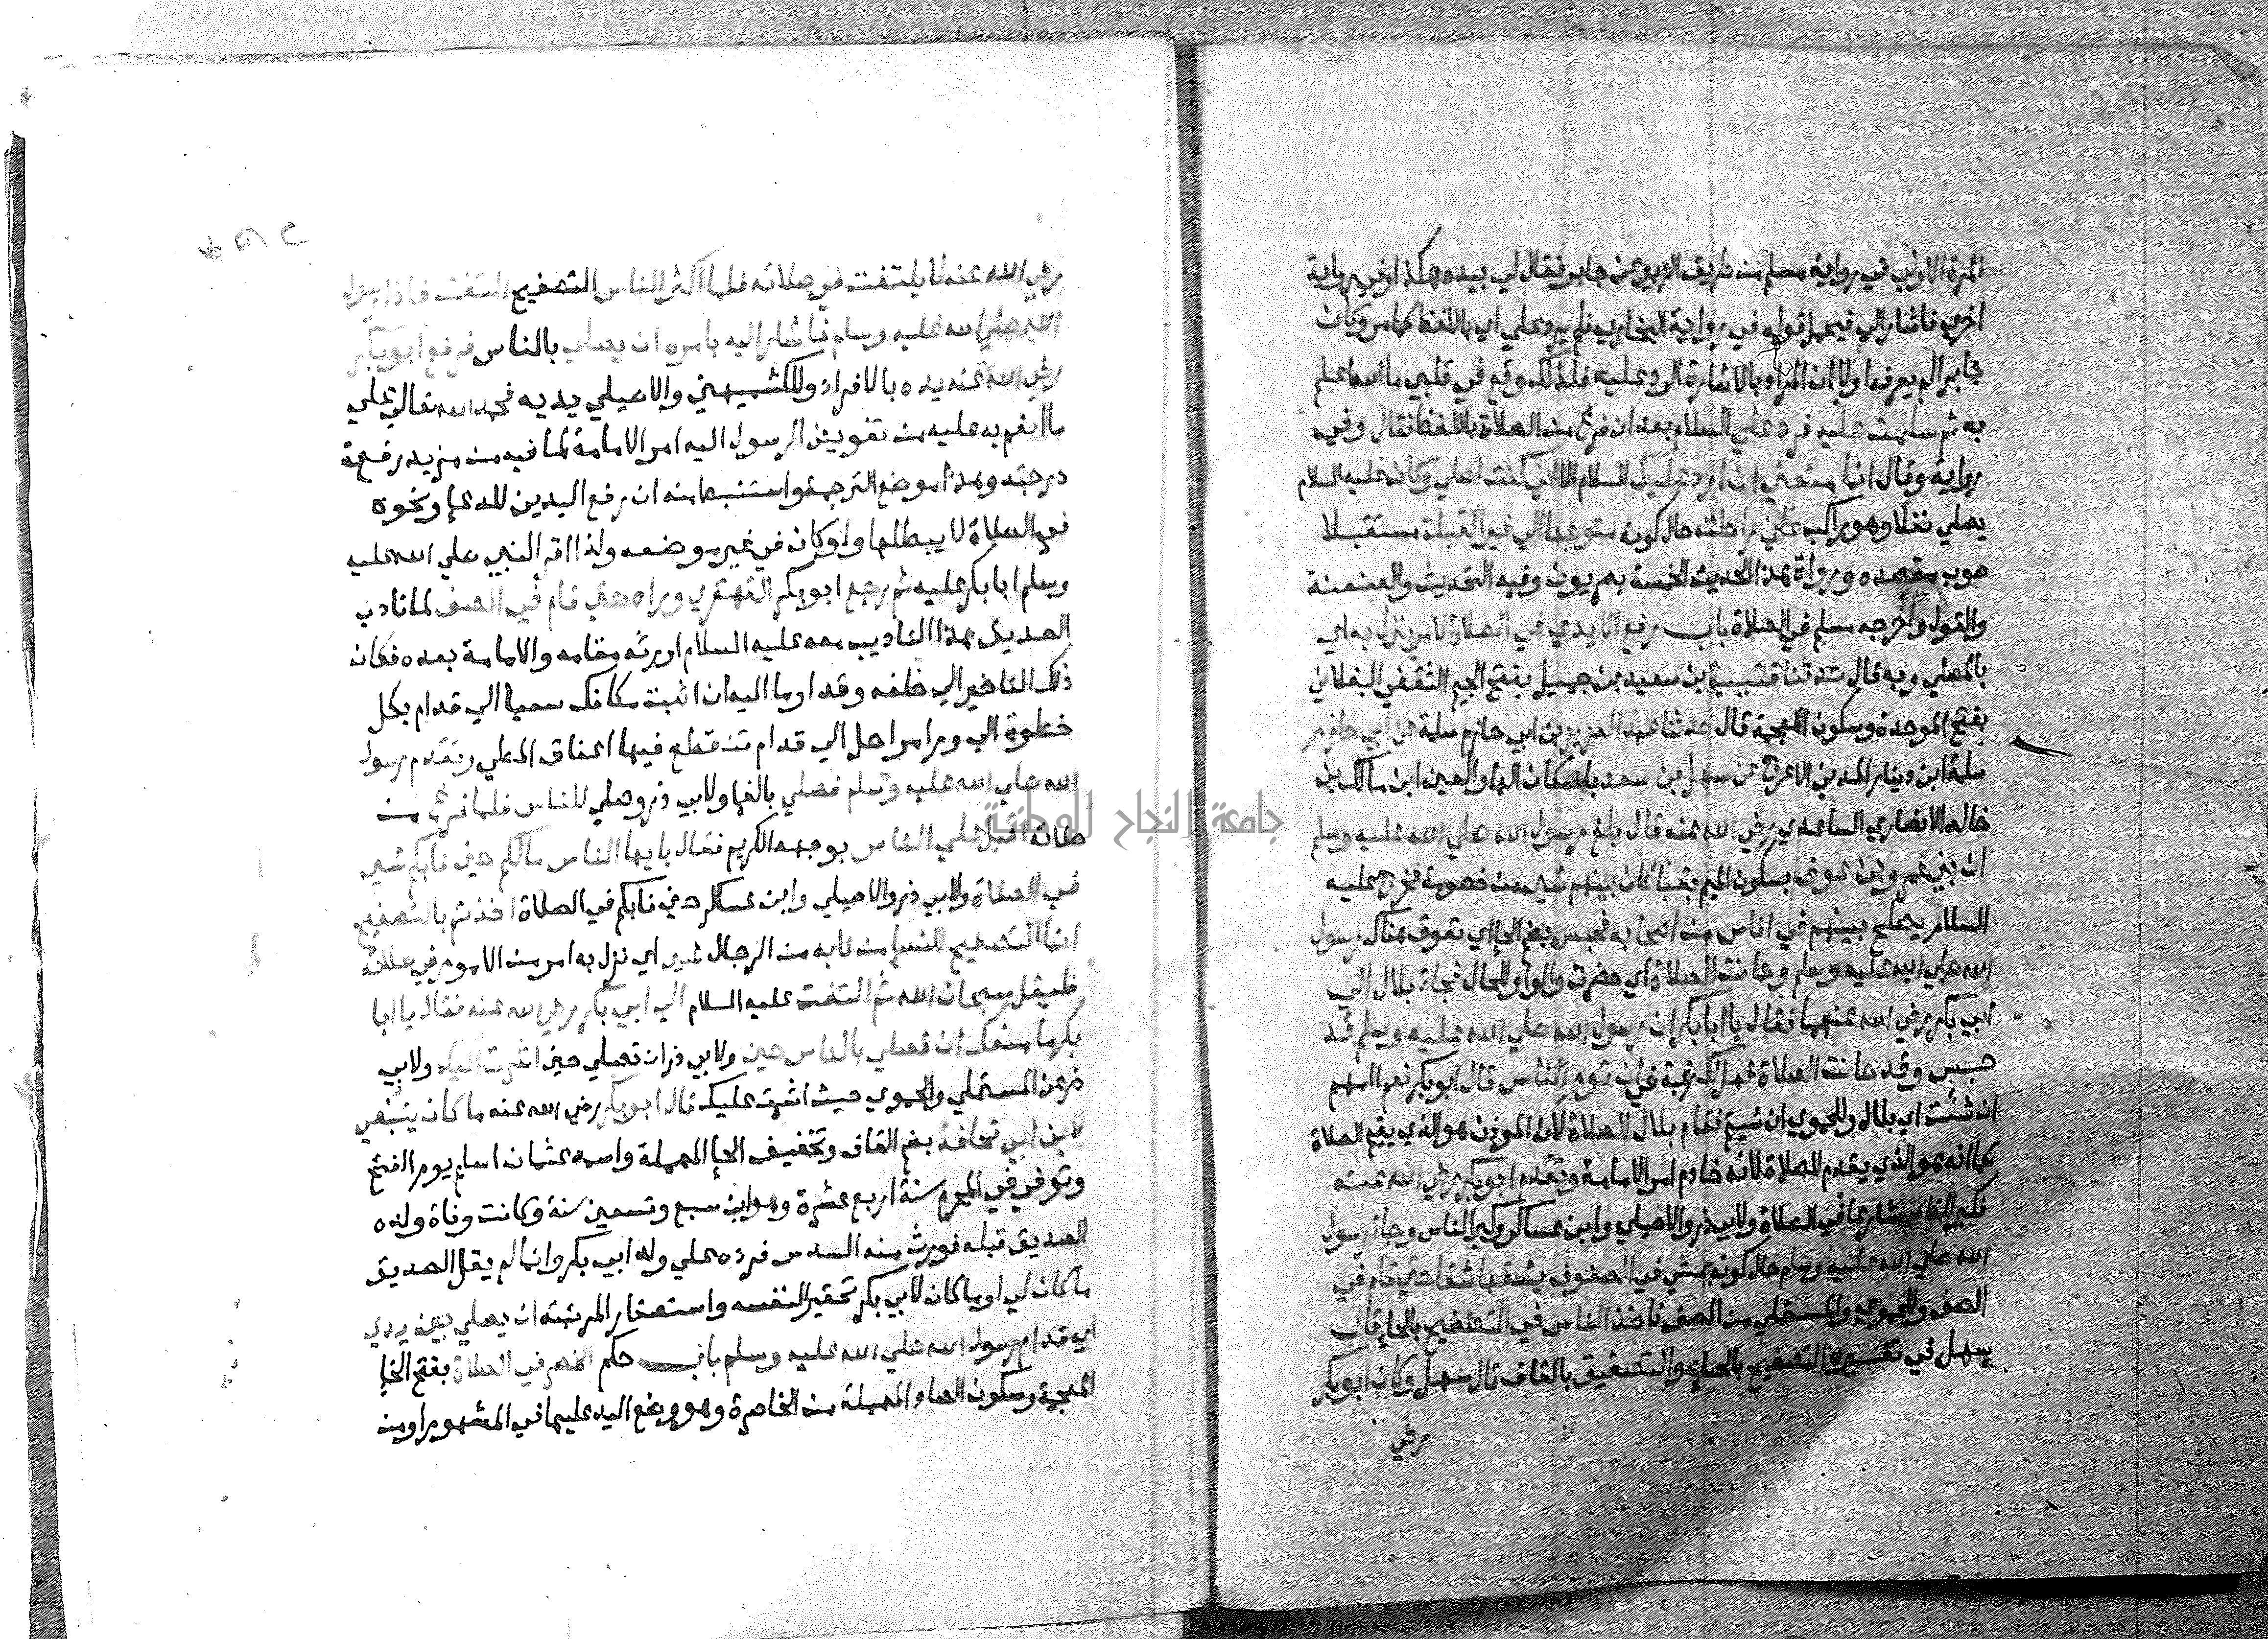 المرة الاولي في رواية مسلم من طريق الزبير عن جابر فقال لي بيده هكذا وفي رواية
اخري فاشار الي فيحمل قوله في رواية البخاري فلم يرد علي اي باللفظ كما مر وكان
جابر لم يعرف اولا ان المراد بالاشارة الرد عليه فلذلك وقع في قلبي ما الله اعلم
به ثم سلمت عليه فرد علي السلام بعد ان فرغ من الصلاة باللفظ فقال وفي
رواية وقال انما منعني ان ارد عليك السلام الا اني كنت اصلي وكان عليه السلام
يصلي نفلا وهو راكب علي راحلته حال كونه متوجها الي غير القبلة مستقبلا
صوب مقصده ورواة هذا الحديث الخمسة بصريون وفيه التحديث والعنعنة
والقول واخرجه مسلم في الصلاة باب رفع الايدي في الصلاة لامر ينزل به اي
بالمصلي وبه قال حدثنا قتيبة بن سعيد بن جميل بفتح الجيم الثقفي البغلاني
بفتح الموحدة وسكون المعجمة قال حدثنا عبد العزيز بن ابي حازم سلمة عن ابي حازم
سلمة ابن دينار المدني الاعرج عن سهل بن سعد باسكان الهاء والعين ابن مالك بن
خالد الانصاري الساعدي رضي الله عنه قال بلغ رسول الله صلي الله عليه وسلم
ان بني عمرو بن عوف بسكون الميم بقبا كان بينهم شي من خصومة فخرج عليه
السلام يصلح بينهم في اناس من اصحابه فحبس بضم الحا اي تعوق هناك رسول
الله صلي الله عليه وسلم وحانت الصلاة اي حضرت والواو للحال فجاء بلال الي
ابي بكر رضي الله عنهما فقال يا ابا بكر ان رسول الله صلي الله عليه وسلم قد
حبس وقد حانت الصلاة فهل لك رغبة في ان توم الناس قال ابو بكر نعم اامهم
ان شئت اي بلال وللحموي ان شيتم فقام بلال الصلاة لان الموذن هو الذي يقيم الصلاة
كما انه هو الذي يقدم للصلاة لانه خادم امر الامامة وتقدم ابو بكر رضي الله عنه
فكبر للناس شارعا في الصلاة ولابي ذر والاصيلي وابن عساكر وكبر الناس وجاء رسول
الله صلي الله عليه وسلم حال كونه يمشي في الصفوف يشقها شقا حتي قام في
الصف وللحموي والمستملي من الصف فاخذ الناس في التصفيح بالحا قال
سهل في تفسيره التصفيح بالحا هو التصفيق بالقاف قال سهل وكان ابو بكر
رضي
رضي الله عنه لا يلتفت في صلاته فلما اكثر الناس التصفيح التفت فاذا رسول
الله صلي الله عليه وسلم فاشار اليه يامره ان يصلي بالناس فرفع ابو بكر
رضي الله عنه يده بالافراد وللكشميهني والاصيلي يديه فحمد الله تعالي علي
ما انعم به عليه من تفويض الرسول اليه امر الامامة لما فيه من مزيد رفعة
درجته وهذا موضع الترجمة واستنبط منه ان رفع اليدين للدعا ونحوه
في الصلاة لا يبطلها ولو كان في غير موضعه ولذا اقر النبي صلي الله عليه
وسلم ابا بكر عليه ثم رجع ابو بكر القهقري وراه حتي قام في الصف لما تادب
الصديق هذا التاديب معه عليه السلام اورثه مقامه والامامة بعده فكان
ذلك التاخير الي خلفه وقد اوما اليه ان اثبت مكانك سعيا الي قدام بكل
خطوة الي ورا مراحل الي قدام تنقطع فيها اعناق المطي وتقدم رسول
الله صلي الله عليه وسلم فصلي بالفا ولابي ذر وصلي للناس فلما فرغ من
صلاته اقبل علي الناس بوجهه الكريم فقال يايها الناس مالكم حين نابكم شي
في الصلاة ولابي ذر والاصيلي وابن عساكر حين نابكم في الصلاة اخذتم بالتصفيح
انما التصفيح للنسا من نابه من الرجال شي اي نزل به امر من الامور في صلاته
فليقل سبحان الله ثم التفت عليه السلام الي ابي بكر رضي الله عنه فقال يا ابا
بكر ما منعك ان تصلي بالناس حين ولابي ذر ان تصلي حين اشرت اليك ولابي
ذر عن المستملي والحموي حيث اشرت عليك قال ابو بكر رضي الله عنه ما كان ينبغي
لابن ابي قحافة بضم القاف وتخفيف الحا المهملة واسمه عثمان اسلم يوم الفتح
وتوفي في المحرم سنة اربع عشرة وهو ابن سبع وتسعين سنة وكانت وفاة ولده
الصديق قبله فورث منه السدس فرده علي ولد ابي بكر وانما لم يقل الصديق
ما كان لي او ما كان لابي بكر تحقيرا لنفسه واستصغارا لمرتبته ان يصلي بين يدي
اي قدام رسول الله صلي الله عليه وسلم باب حكم الخصر في الصلاة بفتح الخا
المعجمة وسكون الصاد المهملة من الخاصرة وهو وضع اليد عليها في المشهور او من
جامعة النجاح الوطنية